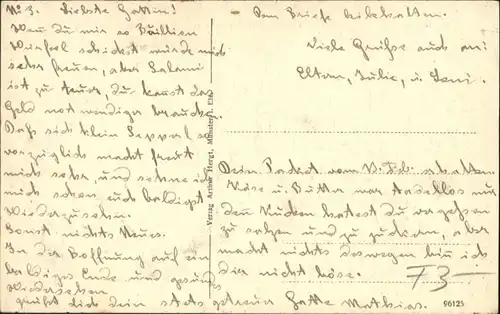 No 3. Liebste Gattin!
Wenn du mir so Bouillon
Würfel schickst würde mich
sehr freuen, aber Salami
ist zu teuer, du kannst das
Geld notwendiger brauchen.
Daß sich klein Sepperl so
vorzüglich macht freut
mich sehr, und sehne ich
mich schon euch baldigst
wiederzusehen.
Sonst nichts Neues.
In der Hoffnung auf ein
baldiges Ende und gesundes
Wiedersehen
grüßt dich dein stets getreuer Gatte Mathias.
Verlag Arthur Hergt, Münster i. Els.
Den Brief erhalten.
Viele Grüße auch an:
Eltern, Julie, u. Leni.
Dein Packet vom 13. Feb. erhalten
Käse u. Butter war tadellos nur
den Kuchen hattest du vergessen
zu salzen und zu zuckern, aber
macht nichts deswegen bin ich
dir nicht böse.
F3-
96125